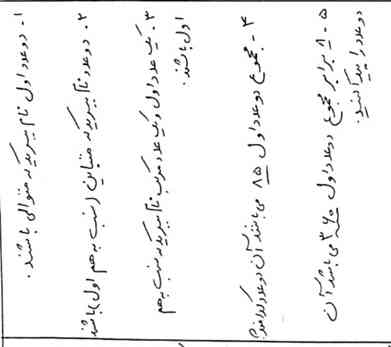 ۱- دو عدد اول نام ببرید که متوالی باشند.
۲- دو عدد نام ببرید که متباین (نسبت به هم اول) باشند
۳- یک عدد اول و یک عدد مرکب نام ببرید که نسبت بهم
اول باشند.
۴- مجموع دو عدد اول ۸۵ می باشد آن دو عدد کدامند؟
۵- ۸ برابر مجموع دو عدد اول ۳۶۰ می باشد آن
دو عدد را پیدا کنید.